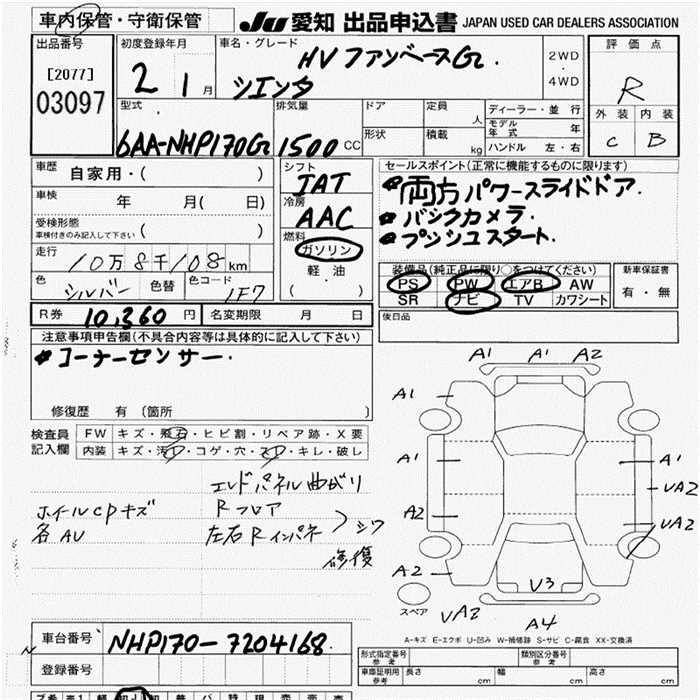 車内保管・守衛保管
JU 愛知 出品申込書 JAPAN USED CAR DEALERS ASSOCIATION
出品番号
[2077]
03097
初度登録年月
2 1 月
車名・グレード
HV ファンベースG
シエンタ
2WD
・
4WD
評価点
R
外装 内装
C B
型式
6AA-NHP170G
排気量
1500 CC
ドア
形状
定員 人
積載 kg
ディーラー・並行
モデル年式 年
ハンドル 左・右
車歴
自家用・( )
車検 年 月( 日)
受検形態
車検付きのみ記入して下さい ( )
走行
10万8千108km
色 シルバー 色替 色コード 1F7
シフト
IAT
冷房
AAC
燃料
ガソリン
軽油
( ・ )
セールスポイント(正常に機能するものに限ります)
両方パワースライドドア.
バックカメラ.
プッシュスタート.
装備品(純正品に限り○をつけてください)
PS PW エアB AW
SR ナビ TV カワシート
新車保証書
有・無
後日品
R券 10,360 円 名変期限 月 日
注意事項申告欄(不具合内容等は具体的に記入して下さい)
コーナーセンサー.
修復歴 有 (箇所 )
検査員
記入欄
FW キズ・飛石・ヒビ割・リペア跡・X要
内装 キズ・汚レ・コゲ・穴・スレ・キレ・破レ
エンドパネル曲がり
ホイールCPキズ
各AU
Rフロア
左右Rインパネ
シワ
修復
A1 A1 A2
A1
A1 A1
UA2
A2 UA2
A2
U3
スペア UA2 A4
A-キズ E-エクボ U-凹み W-補修跡 S-サビ C-腐食 XX-交換済
車台番号 NHP170-7204168
登録番号
形式指定番号 参考
類別区分番号 参考
車庫証明用 参考 長さ cm 幅 cm 高さ cm